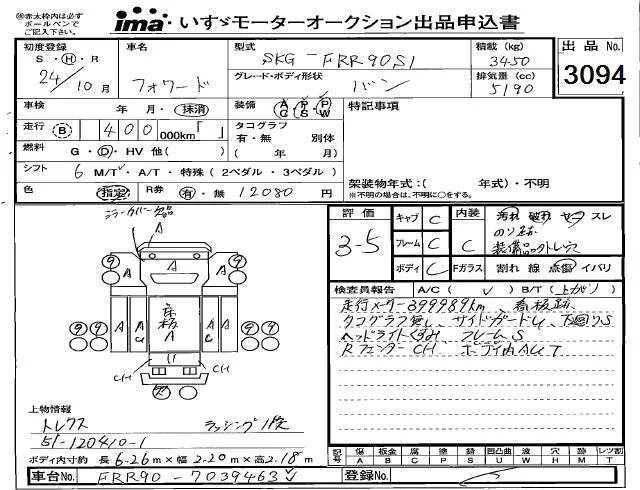 ㊟赤太枠内は必ず
ボールペンで
ご記入下さい。
ima いすゞモーターオークション出品申込書
初度登録 車名 型式 積載(kg) 出品No.
S・H・R フォワード SKG-FRR90S1 3450 3094
24/10月 グレード・ボディ形状 バン 排気量(cc) 5190
車検 年 月・抹消 装備 A/C P/S P/W 特記事項
走行 B 400 000km「 」 タコグラフ 有・無 別体
燃料 G・D・HV 他( ) ( 年 月)
シフト 6 M/T・A/T・特殊(2ペダル・3ペダル) 架装物年式:( 年式)・不明
色 指定 R券 有・無 12080円 ※不明の場合は、不明に○をする。
評価 キャブ C 内装 汚れ 破れ ヤケ スレ
3-5 フレーム C C のり跡 装備品外トレ穴
ボディ C Fガラス 割れ 線 点傷 イバリ
ミラーカバー欠品
検査員報告 A/C( ✓ ) B/T(上がり)
走行メーター399989km、看板跡
タコグラフ無し、サイドガードU、下回りS
ヘッドライトくすみ、フレームS
RフェンダーCH ボディ内AUT
A
A
A A
A A 看板 A A
U
CH CH
上物情報
トレクス ラッシング1段
51-120410-1
ボディ内寸約 長6.26m×幅2.20m×高2.18m
記号 傷 板金 腐 塗 錆 凹凸曲 波 穴 跡 無 レツ割
A B C P S U W H M T
車台No. FRR90-7039463 登録No.